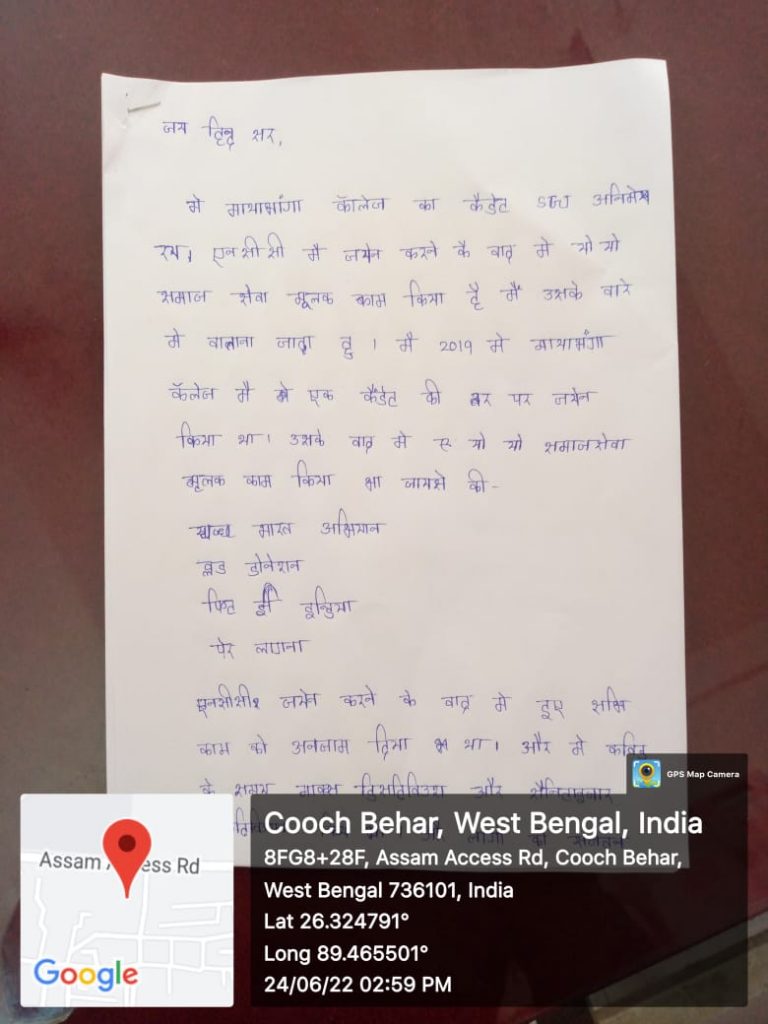 जय हिन्द सर,
मे माथाभांगा कॅालेज का कैडेट SGT अनिमेष
रय। एनसीसी मै जयेन करने के वाद मे यो यो
समाज सेवा मूलक काम किया है मैं उसके वारे
मे वालाना जाता हु । मै 2019 मे माथाभंगा
कॅलेज मै एक कैडेट की तर पर जयेन
किया था। उसके वाद मे यो यो समाजसेवा
मूलक काम किया था जायसे की -
भारत अभियान
व्लड डोनेशन
फिट इन्डिया
पेर लगाना
एनसीसी जयेन करने के वाद मे हुए सभि
काम को अनजाम दिया था। और मे कविड
के समय मास्क और
GPS Map Camera
Cooch Behar, West Bengal, India
8FG8+28F, Assam Access Rd, Cooch Behar,
West Bengal 736101, India
Lat 26.324791°
Long 89.465501°
24/06/22 02:59 PM
Assam Access Rd
Google